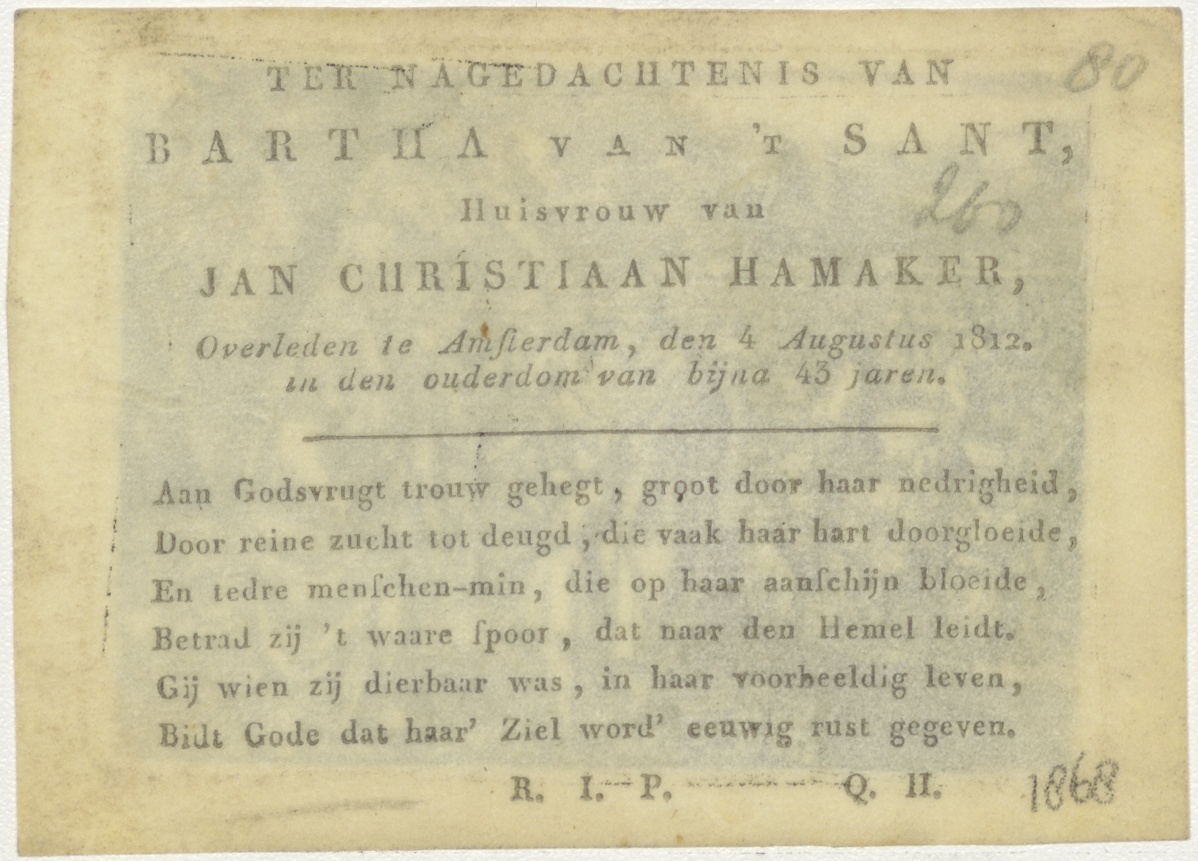 80
TER NAGEDACHTENIS VAN
BARTHA VAN 'T SANT,
260
Huisvrouw van
JAN CHRISTIAAN HAMAKER,
Overleden te Amſterdam, den 4 Augustus 1812.
in den ouderdom van bijna 43 jaren.
Aan Godsvrugt trouw gehegt, groot door haar nedrigheid,
Door reine zucht tot deugd, die vaak haar hart doorgloeide,
En tedre menſchen-min, die op haar aanſchijn bloeide,
Betrad zij 't waare ſpoor, dat naar den Hemel leidt.
Gij wien zij dierbaar was, in haar voorbeeldig leven,
Bidt Gode dat haar' Ziel word' eeuwig rust gegeven.
R. I. P. Q. H.
1868